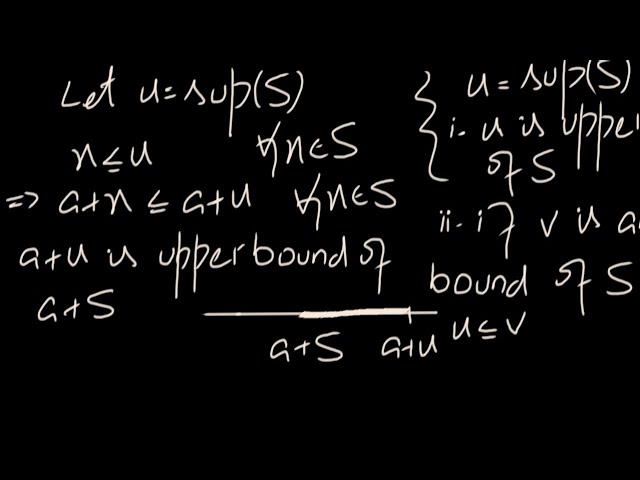 Let u = sup(S)
n ≤ u ∀ n ∈ S
=> a+n ≤ a+u ∀ n ∈ S
a+u is upper bound of
a+S
a+S a+u
u = sup(S)
i. u is upper
of S
ii. if v is a
bound of S
u ≤ v